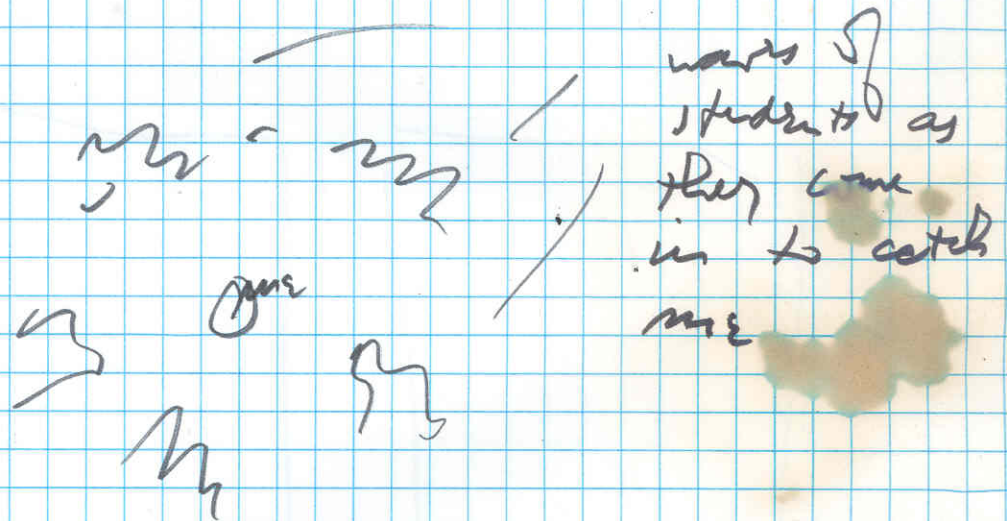 waves of
students as
they come
in to catch
me
me